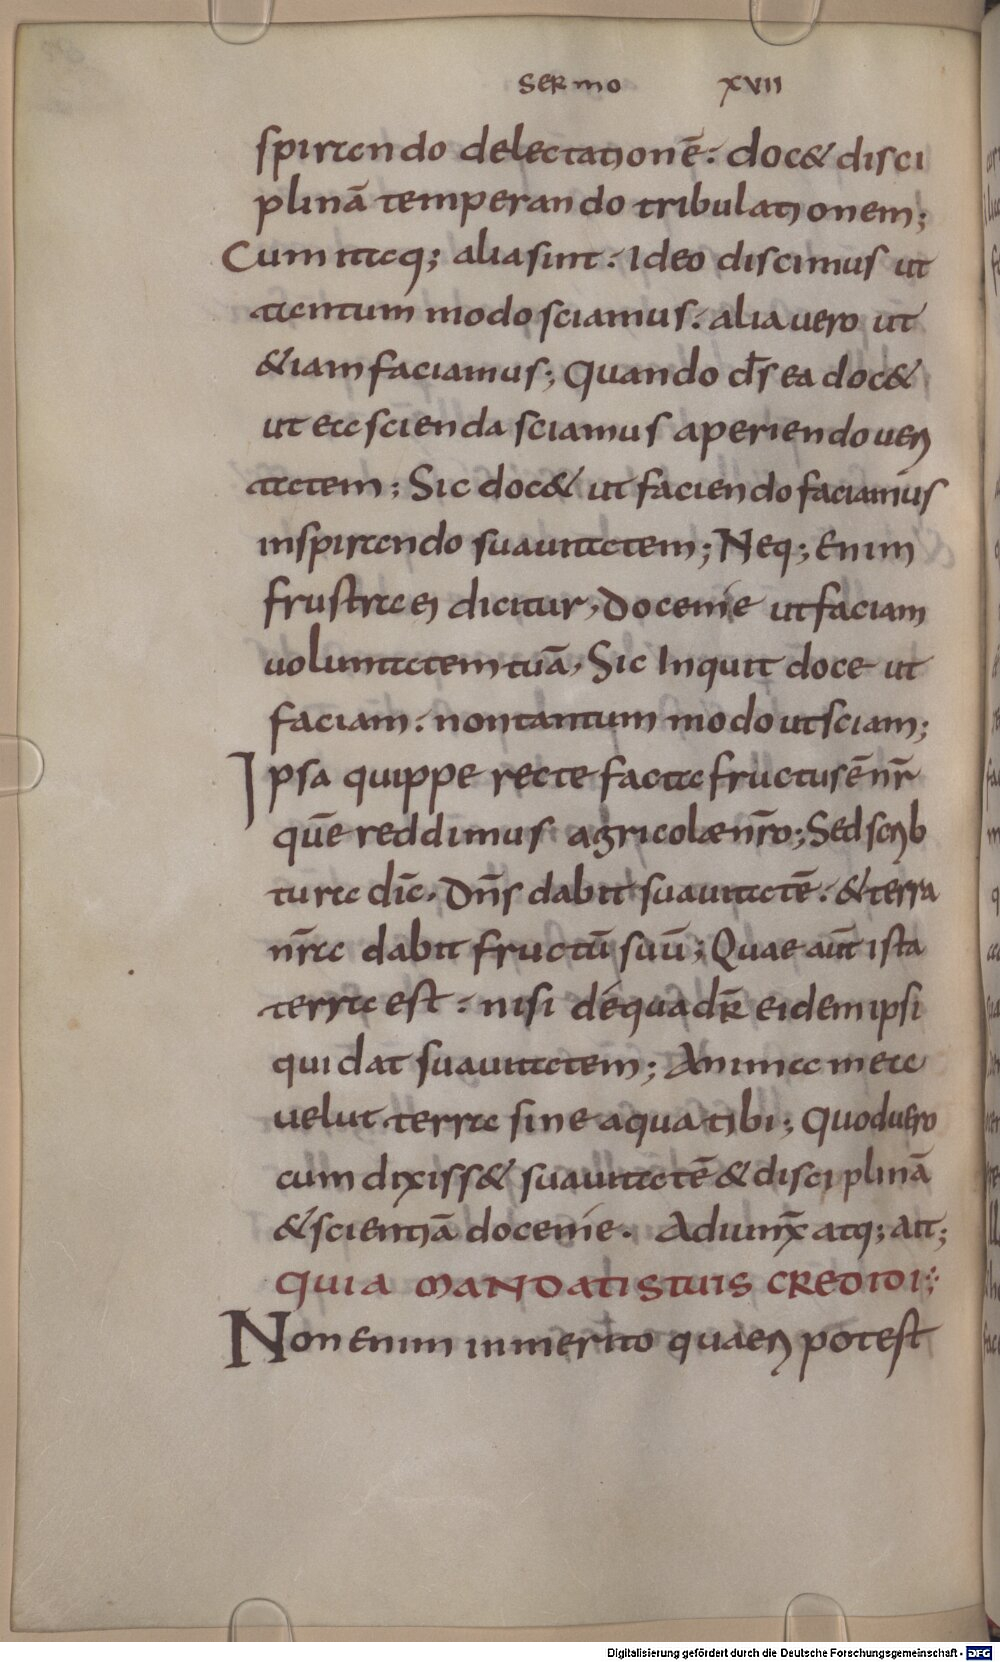 Sermo XVII
spirando delectationē: doc& disci
plinā temperando tribulationem;
Cum itaq; alia sint: Ideo discimus ut
tantum modo sciamus: alia uero ut
&iam faciamus; Quando d̄s ea doc&
ut ea scienda sciamus aperiendo ueri
tatem; Sic doc& ut faciendo faciamus
inspirando suauitatem; Neq; Enim
frustra ei dicitur, Doce me ut faciam
uoluntatem tuā, Sic Inquit doce ut
faciam: non tantum modo ut sciam;
Ipsa quippe recte facta fructus ē nr̄
quē reddimus agricolæ nr̄o; Sed scrib
tura dic̄. Dn̄s dabit suauitatē: & terra
nr̄a dabit fructū suū; Quae aut̄ ista
terra est: nisi de qua dr̄ eidem ipsi
qui dat suauitatem; Anima mea
uelut terra sine aqua tibi; Quod uero
cum dixiss& suauitatē & disciplinā
& scientiā doce me. Adiunx̄ atq; ait;
QUIA MANDATIS TUIS CREDIDI;
Non Enim inmerito quaeri potest
Digitalisierung gefördert durch die Deutsche Forschungsgemeinschaft - DFG